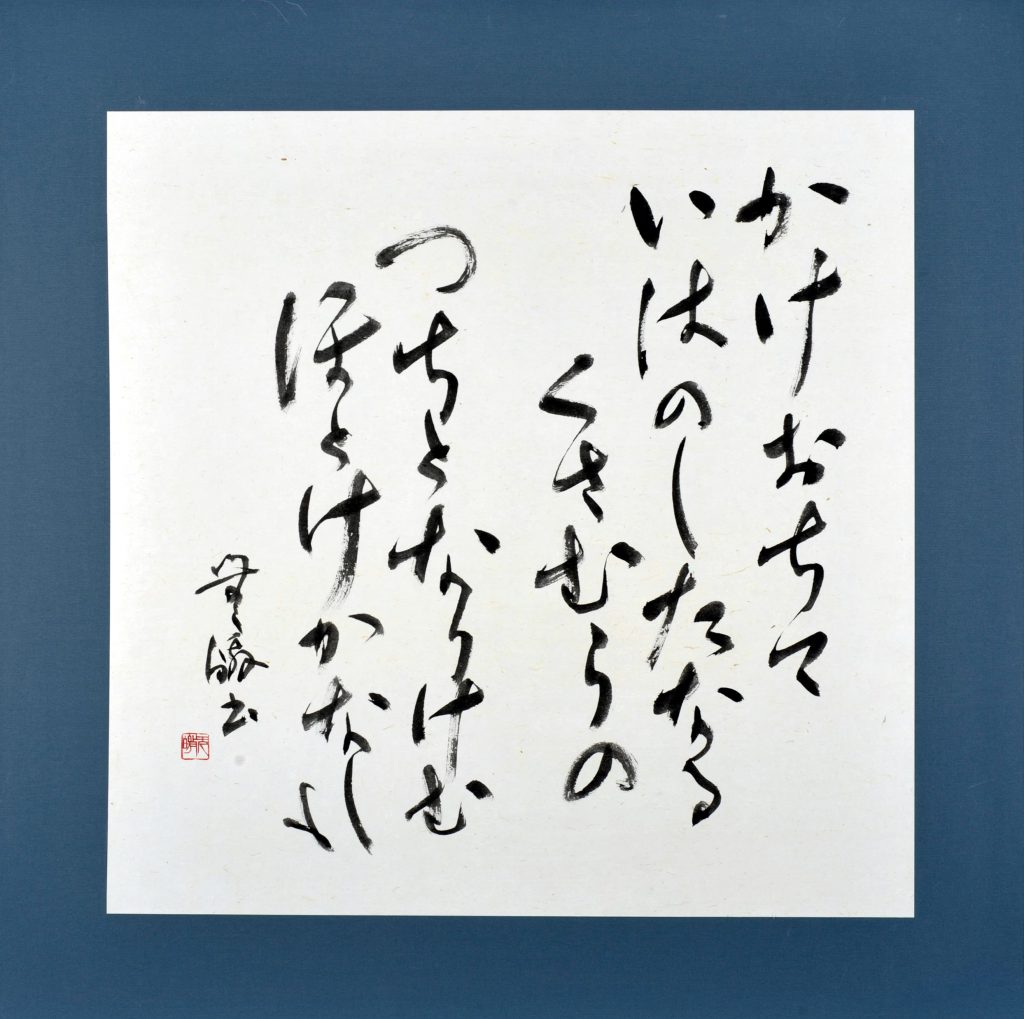 かけおちて
いはのしたなる
くさむらの
つちとなりけむ
ほとけかなしも